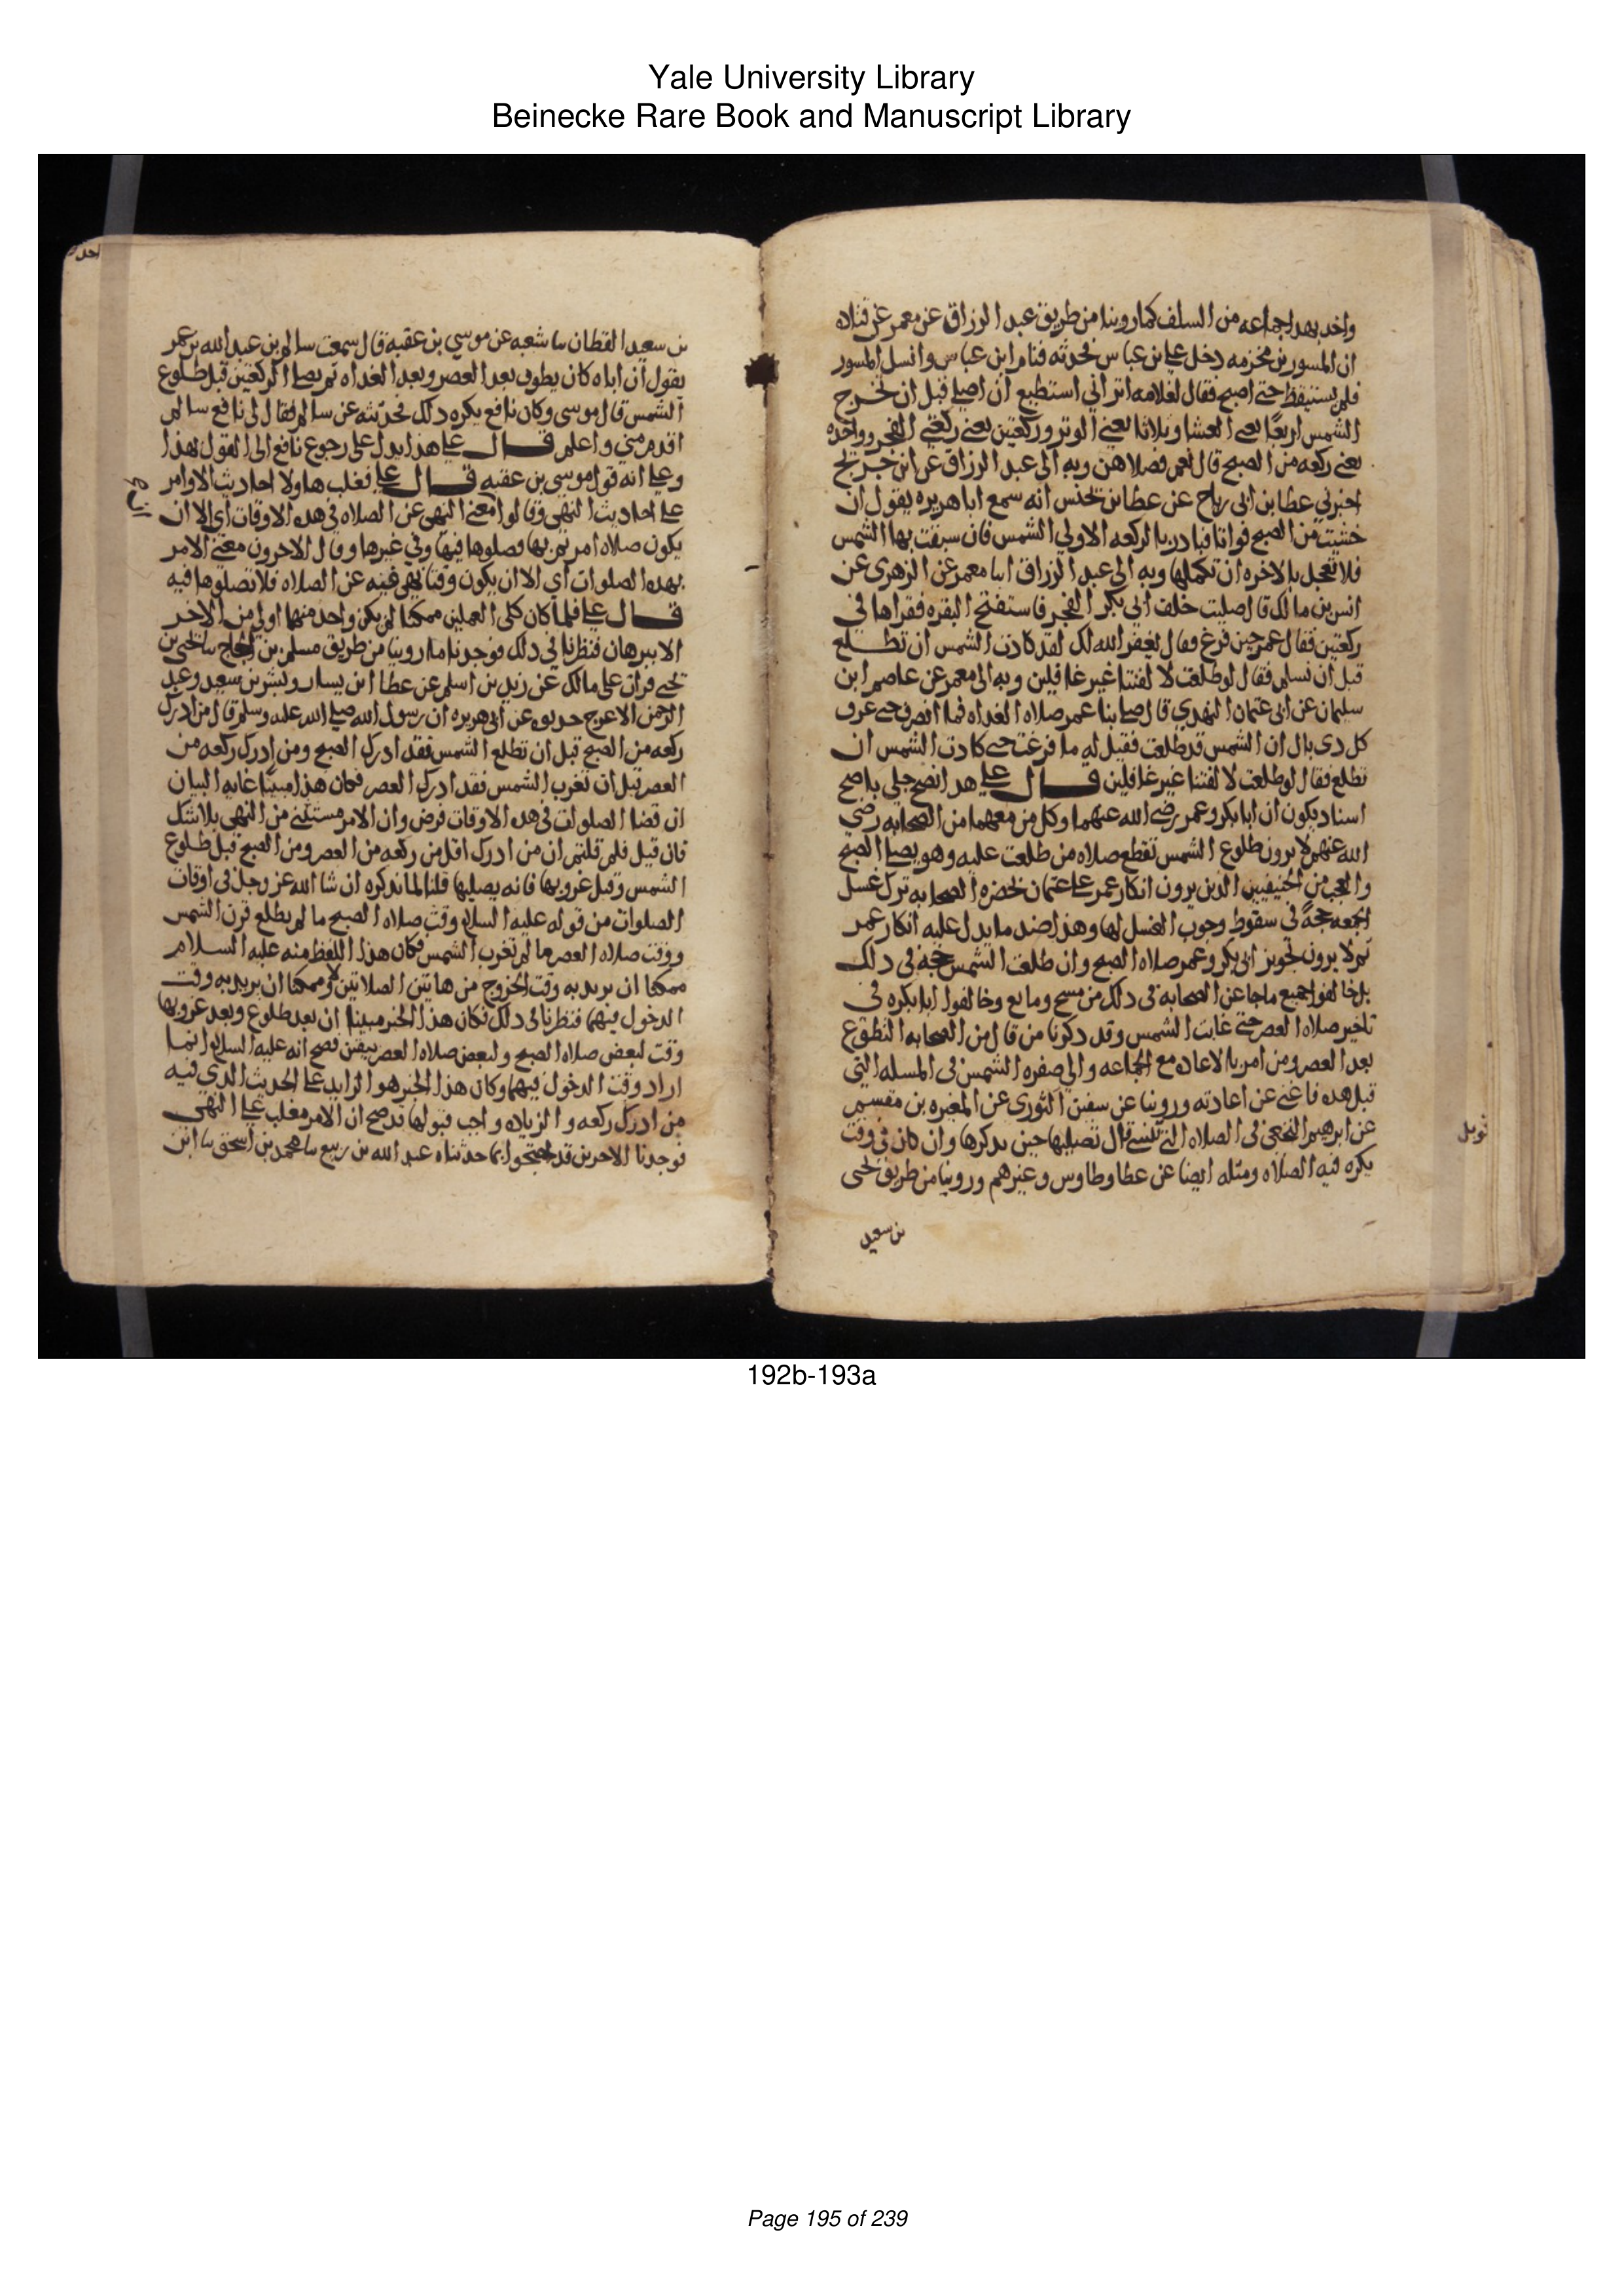 Yale University Library
Beinecke Rare Book and Manuscript Library
واخد بهدا جماعه من السلف كما روينا من طريق عبد الرزاق عن معمر عن قتاده
ان المسور بن مخرمه دخل على ابن عباس فحدثه فنام ابن عباس وانسل المسور
فلم يستيقظ حتى اصبح فقال لغلامه اتراني استطيع ان اصلي قبل ان تخرج
الشمس اربعا يعني العشا وثلاثا يعني الوتر وركعتين يعني ركعتي الفجر وواحده
يعني ركعه من الصبح قال نعم فصلاهن وبه الى عبد الرزاق عن ابن جريج
اخبرني عطا بن ابي رباح عن عطا بن يحنس انه سمع ابا هريره يقول ان
خشيت من الصبح فواتا فبادر بالركعه الاولي الشمس فان سبقت بها الشمس
فلا تعجل بالاخره ان تكملها وبه الى عبد الرزاق انا معمر عن الزهرى عن
انس بن مالك قال صليت خلف ابي بكر الفجر فاستفتح البقره فقراها في
ركعتين فقال عمر حين فرغ فقال يغفر الله لك لقد كادت الشمس ان تطلع
قبل ان تسلم فقال لو طلعت لالفتنا غير غافلين وبه الى معمر عن عاصم ابن
سليمان عن ابى عثمان النهدي قال صلى بنا عمر صلاه الغداه فما انصرف حتى عرف
كل دى بال ان الشمس قد طلعت فقيل له ما فرغت حتى كادت الشمس ان
تطلع فقال لو طلعت لالفتنا غير غافلين قال علي هدا نص جلي باصح
اسناد يكون ان ابا بكر وعمر رضى الله عنهما وكل من معهما من الصحابه رضي
الله عنهم لا يرون طلوع الشمس تقطع صلاه من طلعت عليه وهو يصلي الصبح
والعجب من الحنيفيين الدين يرون انكار عمر على عثمان بحضره الصحابه ترك غسل
الجمعه حجة في سقوط وجوب الغسل لها وهذا ضد ما يدل عليه انكار عمر
ثم لا يرون تجويز ابى بكر وعمر صلاه الصبح وان طلعت الشمس حجه في دلك
بل خالفوا جميع ما جا عن الصحابه في دلك من مبيح ومانع وخالفوا ابا بكره في
تاخير صلاه العصر حتى غابت الشمس وقد دكرنا من قال من الصحابه التطوع
بعد العصر ومن امر بالاعاده مع الجماعه والى صفره الشمس في المسله التي
قبل هده فاغنى عن اعادته وروينا عن سفين الثورى عن المغيره بن مقسم
عن ابرهيم النخعي في الصلاه التي تنسى قال تصليها حين يدكرها وان كان في وقت
يكره فيه الصلاه ومثله ايضا عن عطا وطاوس وغيرهم وروينا من طريق يحيى
بن سعيد
قوبل
بن سعيد القطان نا شعبه عن موسي بن عقبه قال سمعت سالم بن عبد الله بن عمر
يقول ان اباه كان يطوف بعد العصر وبعد الغداه ثم يصلي الركعتين قبل طلوع
الشمس قال موسى وكان نافع يكره دلك فحدثته عن سالم فقال لى نافع سالم
اقدم مني واعلم قال علي هذا يدل على رجوع نافع الى القول بهذا
وعلى انه قول موسى بن عقبه قال علي فغلب هاولا احاديث الاوامر
على احاديث النهي وقالوا معنى النهي عن الصلاه في هده الاوقات اي الا ان
يكون صلاه امر بها فصلوها فيها وفي غيرها وقال الاخرون معنى الامر
بهده الصلوات اي الا ان يكون وقتا نهي فيه عن الصلاه فلا تصلوها فيه
قال علي فلما كان كلى العملين ممكنا لم يكن واحد منهما اولي من الاخر
الا ببرهان فنظرنا في دلك فوجدنا ما روينا من طريق مسلم بن الحجاج نا يحيى بن
يحيى قرات على مالك عن زيد بن اسلم عن عطا ابن يسار وبشر بن سعيد وعبد
الرحمن الاعرج حدثوه عن ابى هريره ان رسول الله صلى الله عليه وسلم قال من ادرك
ركعه من الصبح قبل ان تطلع الشمس فقد ادرك الصبح ومن ادرك ركعه من
العصر قبل ان تغرب الشمس فقد ادرك العصر فكان هذا مبينا غايه البيان
ان قضا الصلوات في هده الاوقات فرض وان الامر مستثنى من النهي بلا شك
فان قيل فلم قلتم ان من ادرك اقل من ركعه من العصر ومن الصبح قبل طلوع
الشمس وقبل غروبها فانه يصليها قلنا لما ندكره ان شا الله عز وجل في اوقات
الصلوات من قوله عليه السلم وقت صلاه الصبح ما لم يطلع قرن الشمس
ووقت صلاه العصر ما لم تغرب الشمس فكان هذا اللفظ منه عليه السلام
ممكنا ان يريد به وقت الخروج من هاتين الصلاتين وممكنا ان يريد به وقت
الدخول فيهما فنظرنا في دلك فكان هذا الخبر مبينا ان بعد طلوع وبعد غروبها
وقت لبعض صلاه الصبح ولبعض صلاه العصر بيقين فصح انه عليه السلم انما
اراد وقت الدخول فيهما وكان هذا الخبر هو الزايد على الحديث الدي فيه
من ادرك ركعه والزياده واجب قبولها قد صح ان الامر مغلب على النهى
فوجدنا الاخرين قد احتجوا بما حدثناه عبد الله بن ربيع نا محمد بن اسحق نا ابن
192b-193a
Page 195 of 239